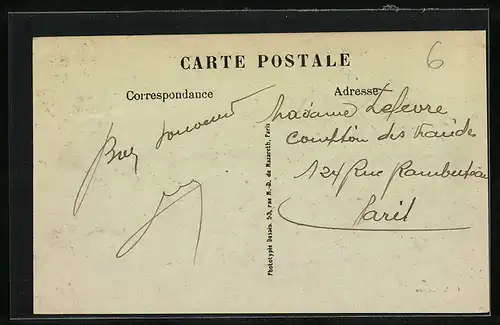 CARTE POSTALE
6
Correspondance
Adresse
Bon souvenir
Madame Lefevre
Comptoir des Viandes
124 Rue Rambuteau
Paris
Phototypie Desaix. 53, rue N.-D. de Nazareth, Paris